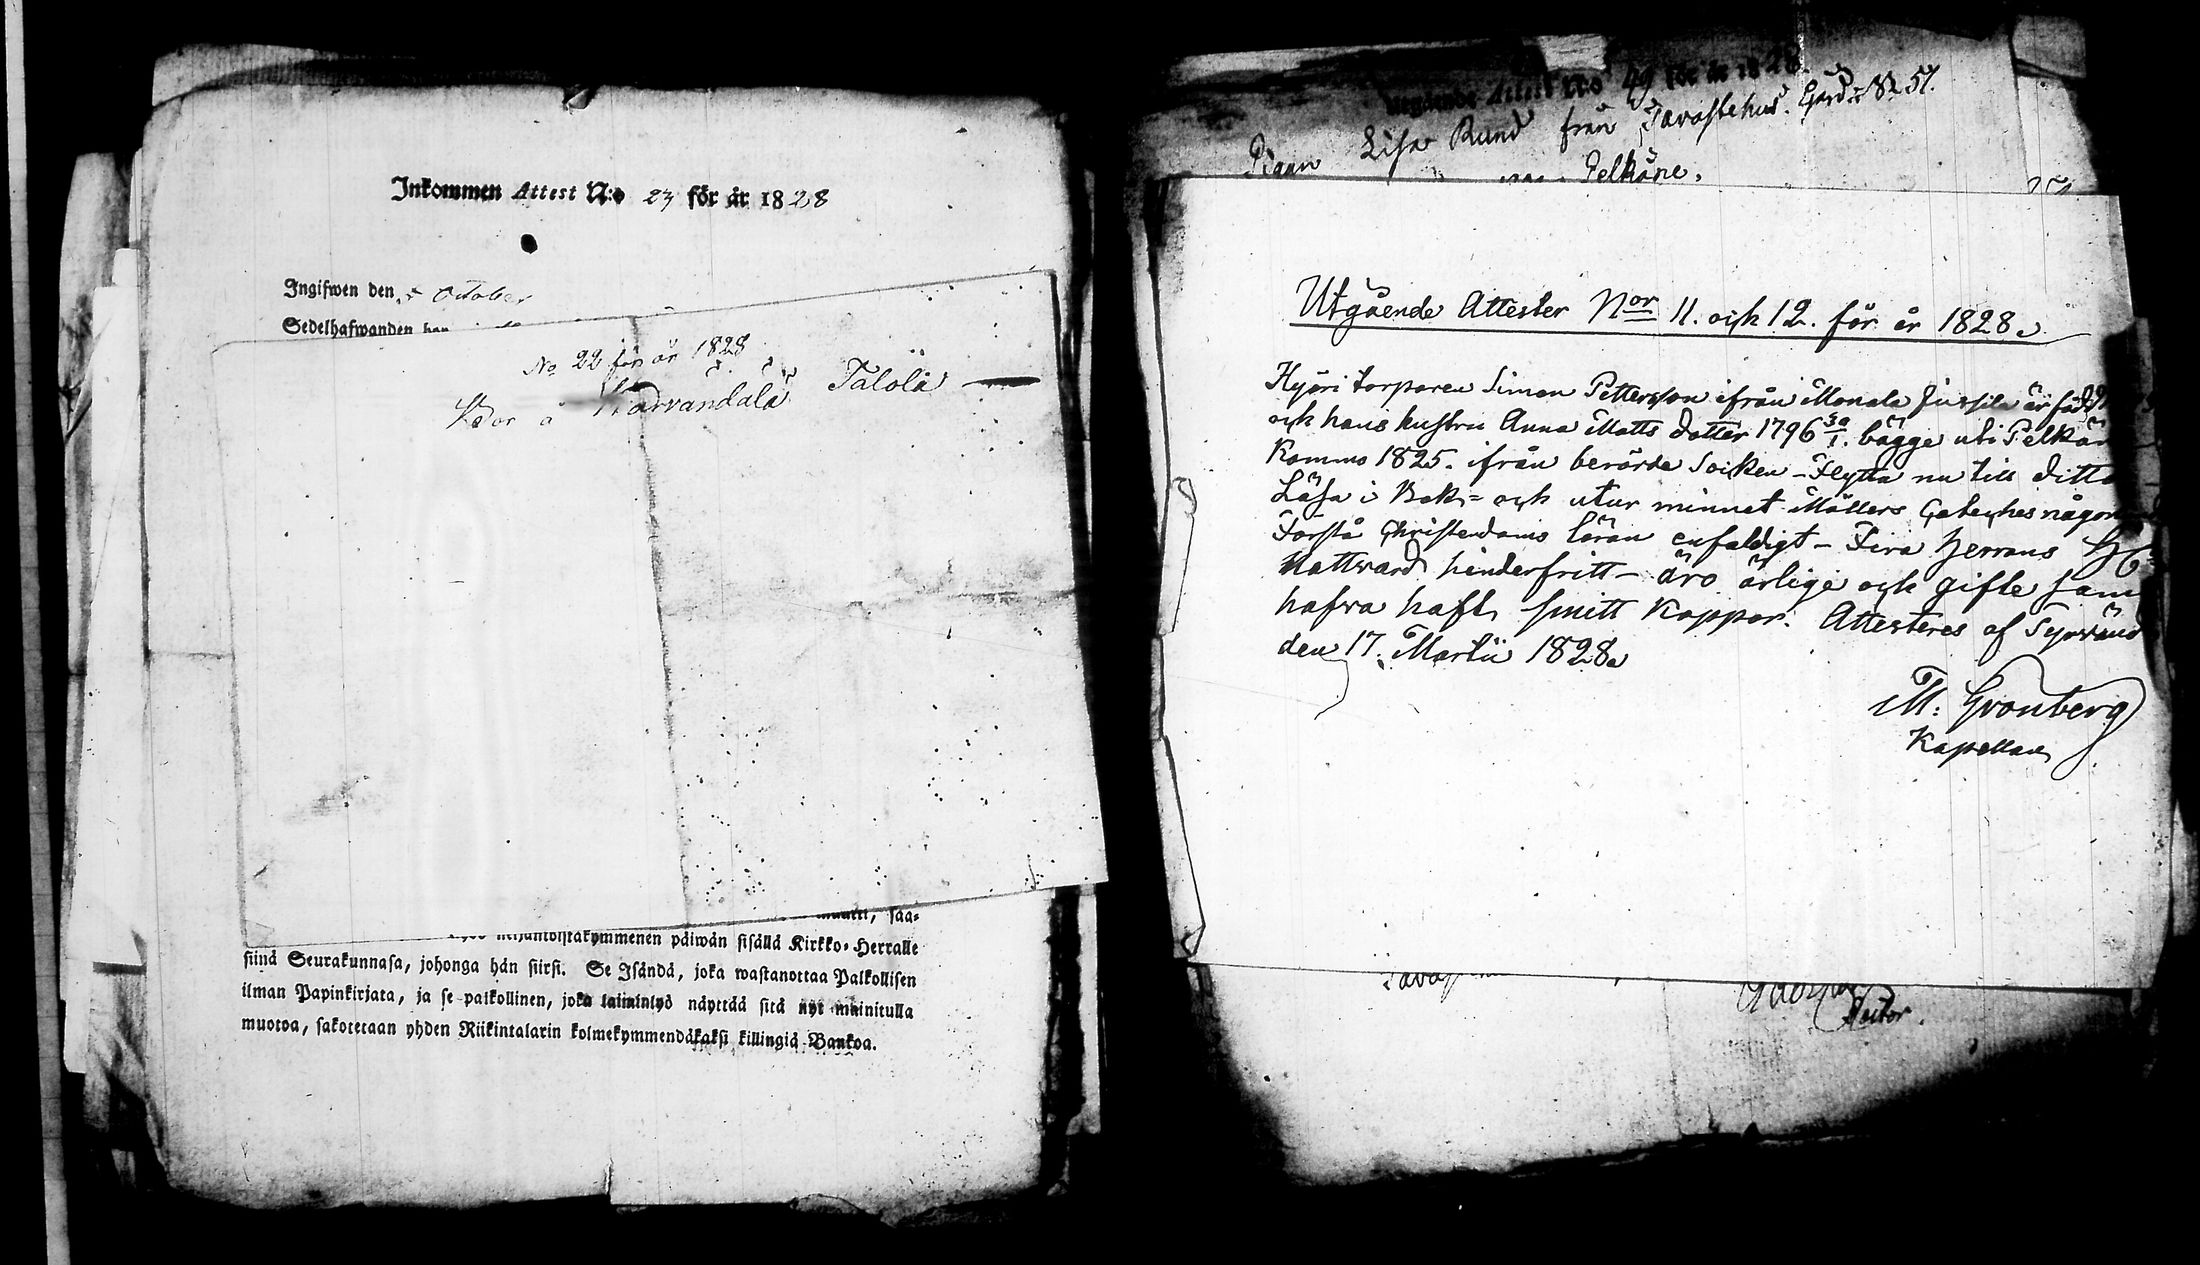 Inkommen Attest N:o 23 för år 1828
Ingifwen den October
Sedelhafwanden
No 22 för år 1828
å Karvandala Talola
saa-
päiwän sisällä Kirkko-Herralle
siinä Seurakunnasa, johonga hän siirsi. Se Isändä, joka wastanottaa Palkollisen
ilman Papinkirjata, ja se palkollinen, joka laiminlyö näyttää sitä nyt mainitulla
muotoa, sakotetaan yhden Riikintalarin kolmekymmendäkaksi killingiä Bankoa.
Attest N:o 49 för år 1828.
Pigan Lisa Rund från Tavastehus
Pelkäne.
Utgående Attester Nor 11. och 12. för år 1828.
Hyöri torparen Simon Pettersson ifrån Monala Jussila är född
och hans hustru Anna Matts dotter 1796 30/1. bägge uti Pelkän
Kommo 1825. ifrån berörde Socken - Flytta nu till ditto
Läsa i Bok= och utur minnet Möllers Cateches någon
Förstå Christendoms läran enfaldigt - Fira Herrans H
Nattward hinderfritt - äro ärlige och gifte sam
hafva haft smitt koppor. Attesteres af Syrvänd
den 17. Martii 1828.
M: Gronberg
Kapellan